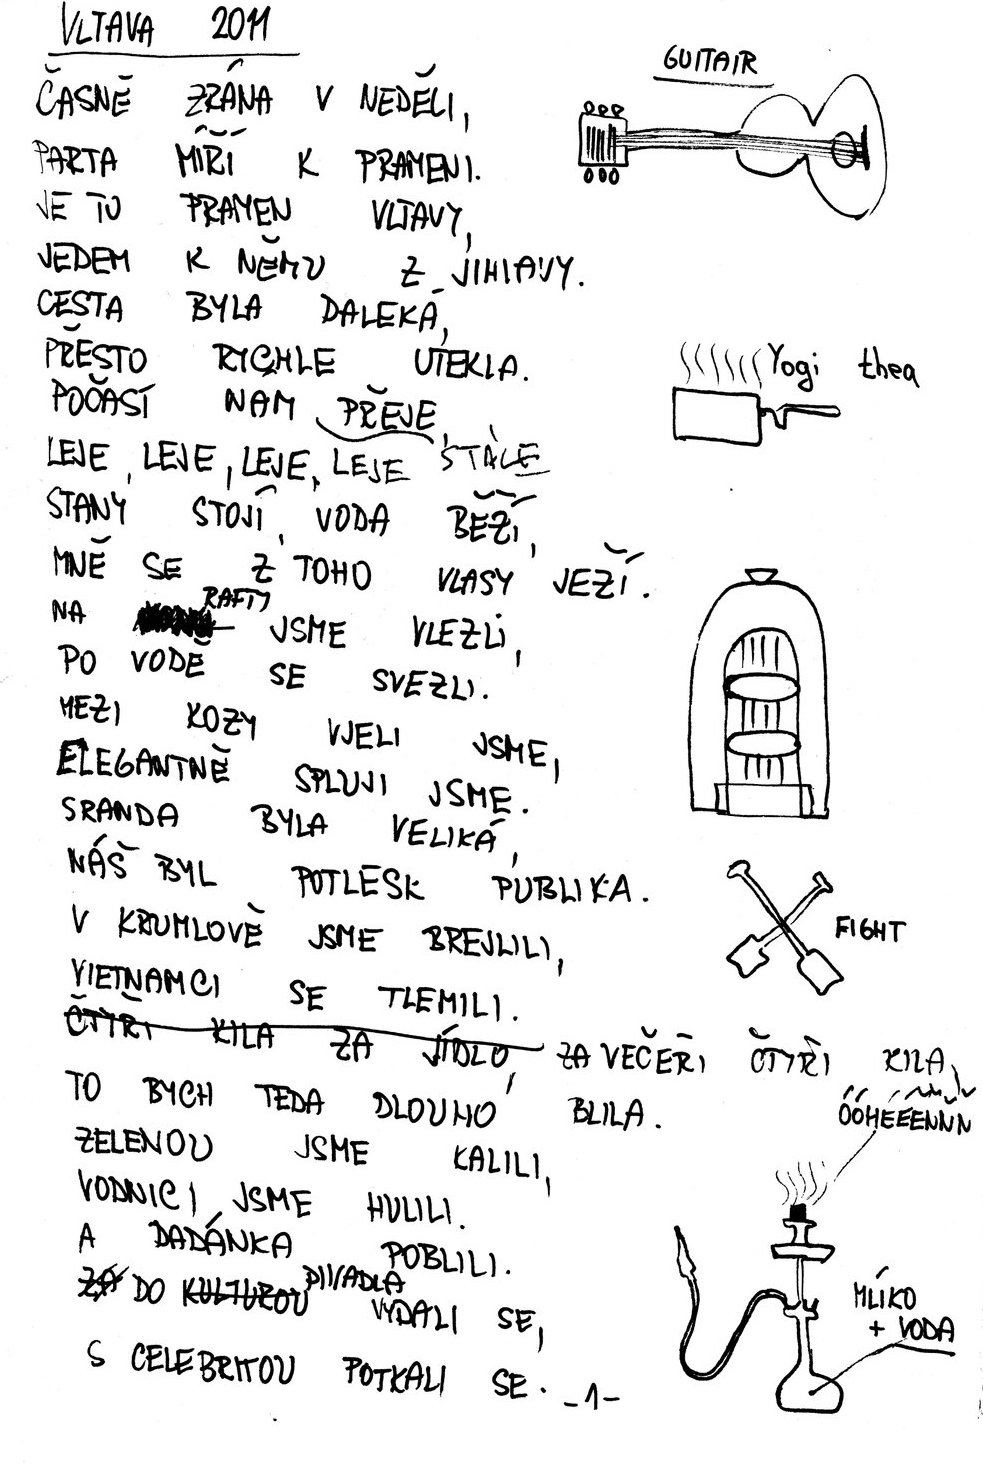 VLTAVA 2011
GUITAIR
ČASNĚ ZRÁNA V NEDĚLI,
PARTA MÍŘÍ K PRAMENI.
JE TO PRAMEN VLTAVY,
JEDEM K NĚMU Z JIHLAVY.
CESTA BYLA DALEKÁ,
PŘESTO RYCHLE UTEKLA.
Yogi thea
POČASÍ NÁM PŘEJE,
LEJE, LEJE, LEJE, LEJE STÁLE
STANY STOJÍ, VODA BĚŽÍ,
MNĚ SE Z TOHO VLASY JEŽÍ.
NA RAFTY JSME VLEZLI,
PO VODĚ SE SVEZLI.
MEZI KOZY VJELI JSME,
ELEGANTNĚ SPLULI JSME.
SRANDA BYLA VELIKÁ,
NÁŠ BYL POTLESK PUBLIKA.
FIGHT
V KRUMLOVĚ JSME BREJLILI,
VIETNAMCI SE TLEMILI.
ČTYŘI KILA ZA JÍDLO, ZA VEČEŘI ČTYŘI KILA,
TO BYCH TEDA DLOUHO BLILA.
ÓÓHEEENNN
ZELENOU JSME KALILI,
VODNICI JSME HULILI.
A DADÁNKA POBLILI.
ZA DO KULTUROU DIVADLA VYDALI SE,
MLÍKO
+ VODA
S CELEBRITOU POTKALI SE.
-1-